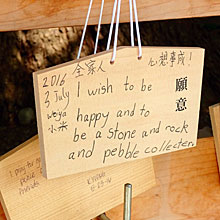 2016 全家人 心想事成!
3 July I wish to be 願意
weiya happy and to
小米 be a stone and rock
and pebble collecter.
I pray for